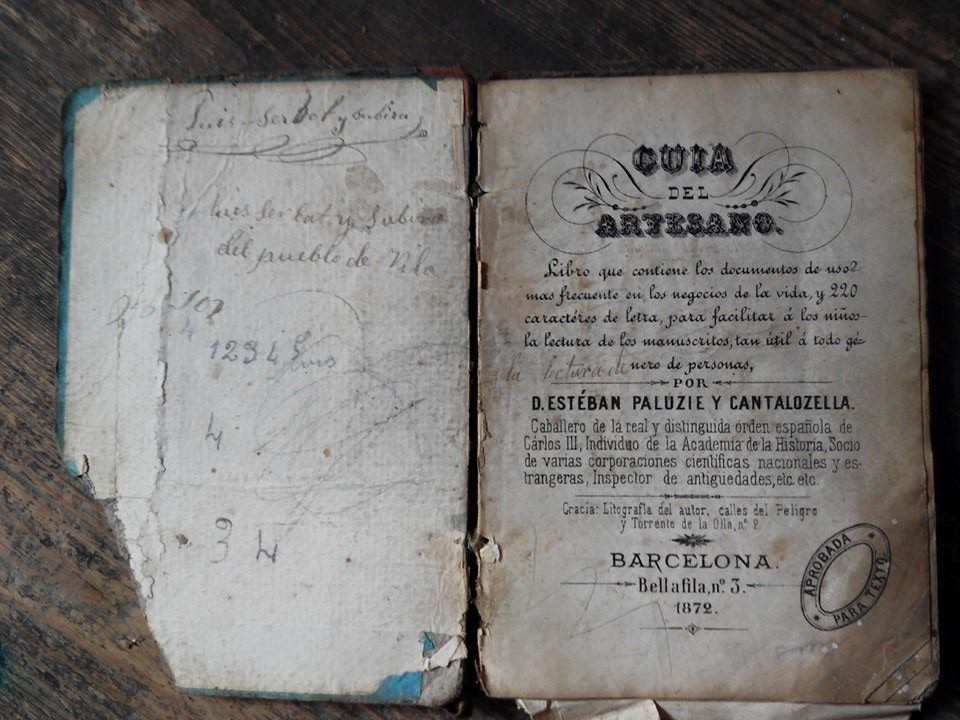 Luis Serbat y Subira
Luis Serbat y Subira
del pueblo de Vila
107
4
1234 Luis
4
3 4
GUIA
DEL
ARTESANO.
Libro que contiene los documentos de uso
mas frecuente en los negocios de la vida, y 220
caractéres de letra, para facilitar á los niños
la lectura de los manuscritos, tan útil á todo gé-
nero de personas,
la lectura de
POR
D. ESTÉBAN PALUZIE Y CANTALOZELLA.
Caballero de la real y distinguida orden española de
Cárlos III, Individuo de la Academia de la Historia, Socio
de varias corporaciones científicas nacionales y es-
trangeras, Inspector de antigüedades, etc. etc.
Gracia: Litografía del autor, calles del Peligro
y Torrente de la Olla, nº 2.
BARCELONA.
Bellafila, nº. 3.
1872.
APROBADA
PARA TEXTO.